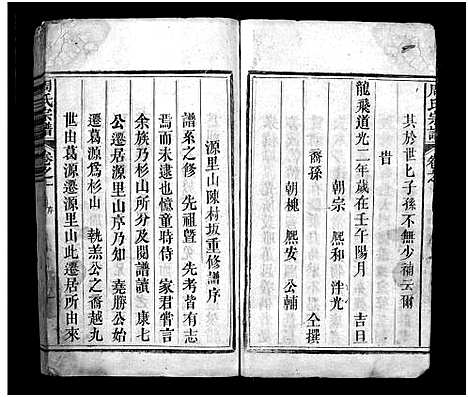 周氏宗譜
卷之一
其於世匕子孫不無少補云爾
旹
龍飛道光二年歲在壬午陽月吉旦
朝宗 熈和 泮光
裔孫
仝撰
朝槐 熈安 公輔
源里山陳村坂重修譜序
譜系之修 先祖暨 先考皆有志
焉而未逮也憶童時侍 家君嘗言
余族乃杉山所分及閱譜讀 康七
公遷居源里山序乃知 堯勝公始
遷葛源爲杉山 執羔公之裔越九
世由葛源遷源里山此遷居所由來
周氏宗譜
卷之一
序